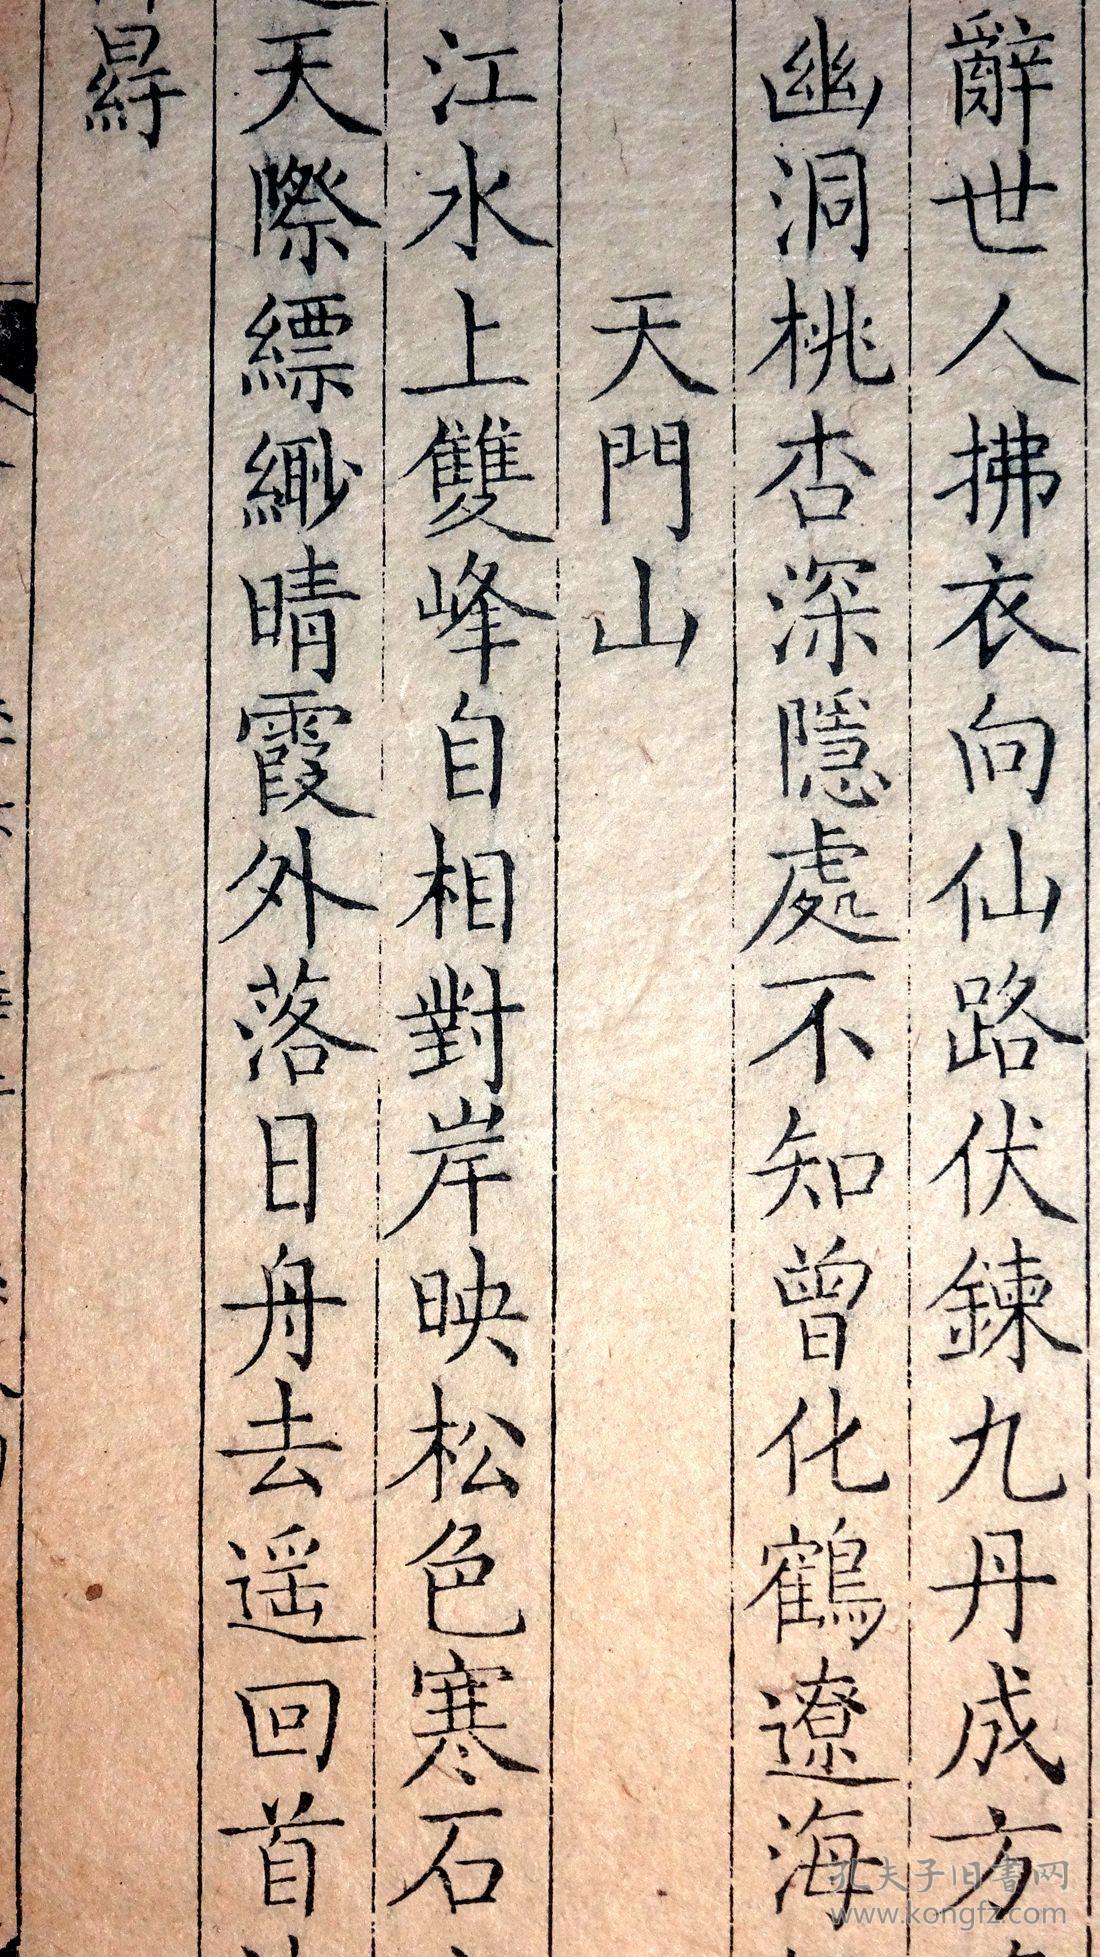 辭世人拂衣向仙路伏鍊九丹成方
幽洞桃杏深隱處不知曾化鶴遼海
天門山
江水上雙峰自相對岸映松色寒石
天際縹緲晴霞外落日舟去遥回首
孔夫子旧書网
www.kongfz.com